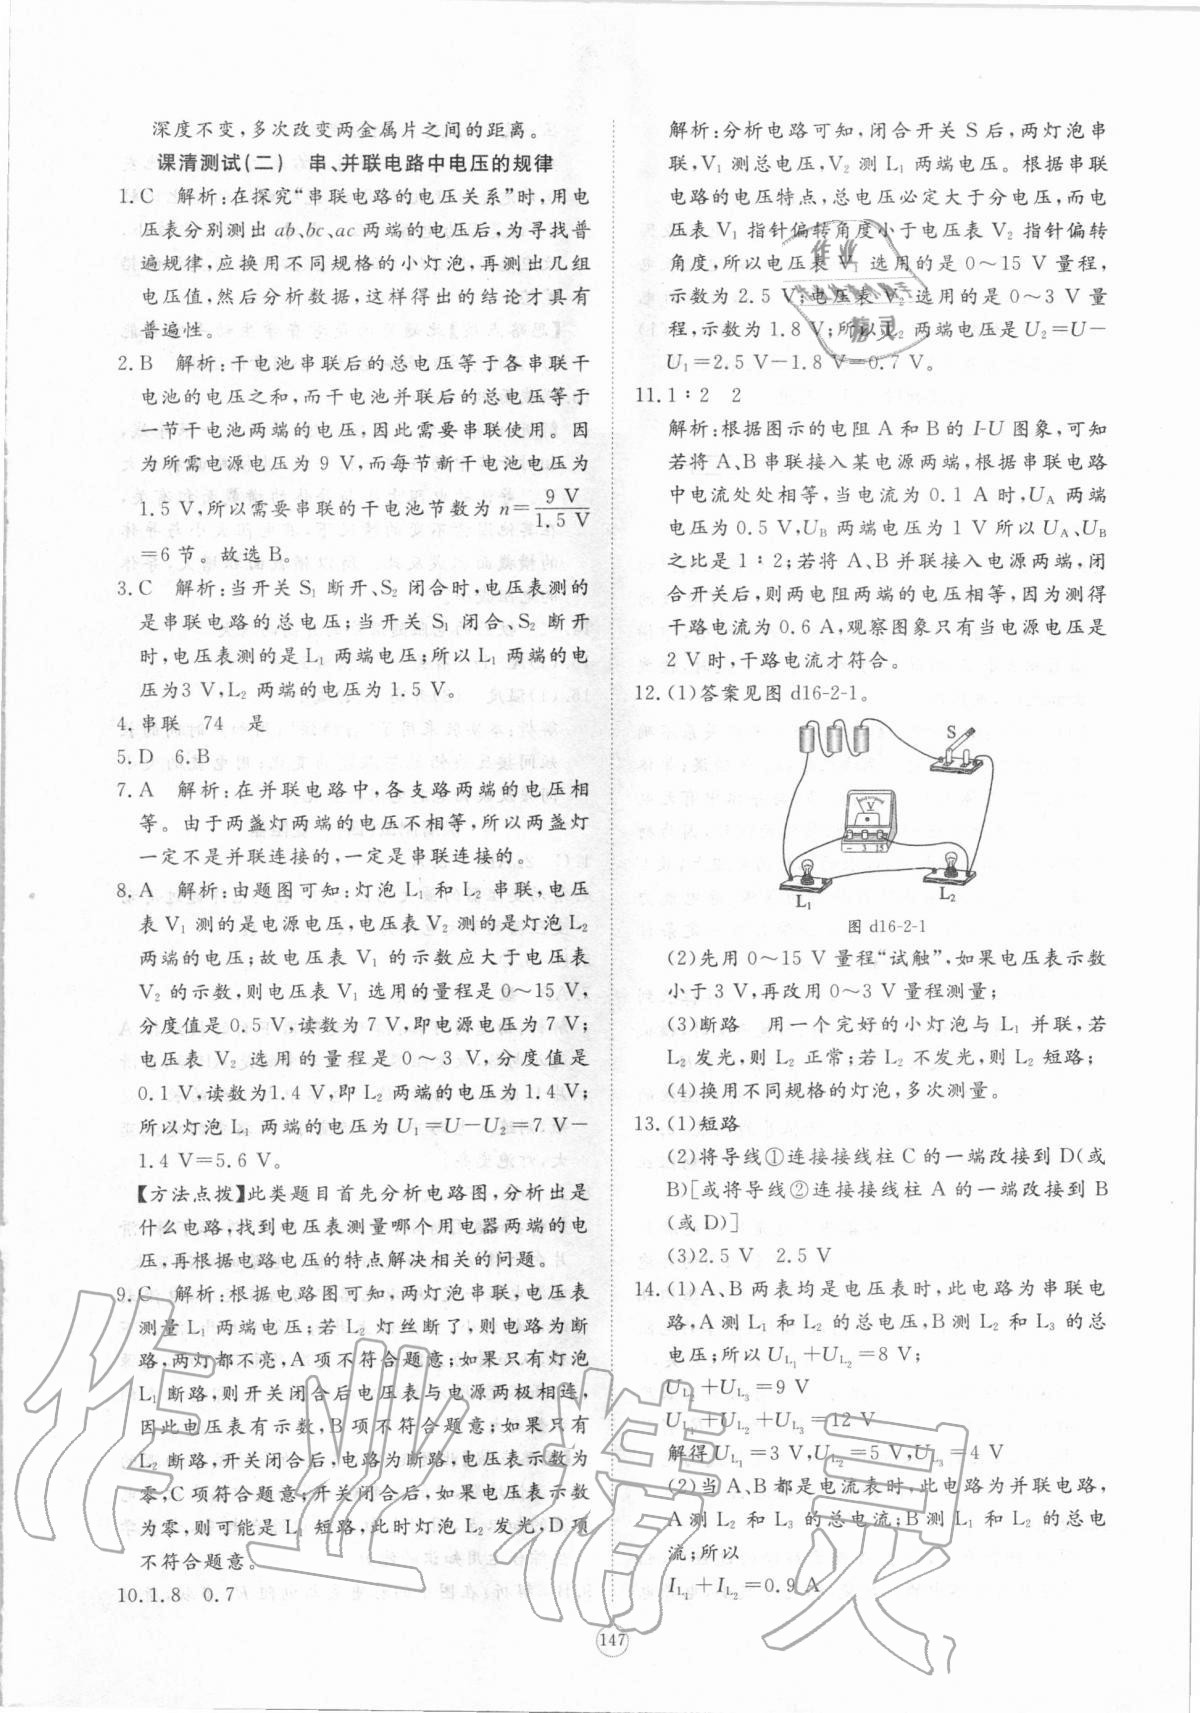 深度不变,多次改变两金属片之间的距离。
课清测试(二)　串、并联电路中电压的规律
1.C　解析:在探究“串联电路的电压关系”时,用电
压表分别测出 ab、bc、ac 两端的电压后,为寻找普
遍规律,应换用不同规格的小灯泡,再测出几组
电压值,然后分析数据,这样得出的结论才具有
普遍性。
2.B　解析:干电池串联后的总电压等于各串联干
电池的电压之和,而干电池并联后的总电压等于
一节干电池两端的电压,因此需要串联使用。因
为所需电源电压为 9 V,而每节新干电池电压为
1.5 V,所以需要串联的干电池节数为 n=9 V/1.5 V
=6节。故选B。
3.C　解析:当开关 S₁ 断开、S₂ 闭合时,电压表测的
是串联电路的总电压;当开关 S₁ 闭合、S₂ 断开
时,电压表测的是 L₁ 两端电压;所以 L₁ 两端的电
压为3 V,L₂ 两端的电压为 1.5 V。
4.串联　74　是
5.D　6.B
7.A　解析:在并联电路中,各支路两端的电压相
等。由于两盏灯两端的电压不相等,所以两盏灯
一定不是并联连接的,一定是串联连接的。
8.A　解析:由题图可知:灯泡 L₁ 和 L₂ 串联,电压
表 V₁ 测的是电源电压,电压表 V₂ 测的是灯泡 L₂
两端的电压;故电压表 V₁ 的示数应大于电压表
V₂ 的示数,则电压表 V₁ 选用的量程是 0～15 V,
分度值是 0.5 V,读数为 7 V,即电源电压为 7 V;
电压表 V₂ 选用的量程是 0～3 V,分度值是
0.1 V,读数为1.4 V,即 L₂ 两端的电压为 1.4 V;
所以灯泡 L₁ 两端的电压为 U₁=U-U₂=7 V-
1.4 V=5.6 V。
【方法点拨】此类题目首先分析电路图,分析出是
什么电路,找到电压表测量哪个用电器两端的电
压,再根据电路电压的特点解决相关的问题。
9.C　解析:根据电路图可知,两灯泡串联,电压表
测量 L₁ 两端电压;若 L₂ 灯丝断了,则电路为断
路,两灯都不亮,A 项不符合题意;如果只有灯泡
L₁ 断路,则开关闭合后电压表与电源两极相连,
因此电压表有示数,B 项不符合题意;如果只有
L₂ 断路,开关闭合后,电路断路,电压表示数为
零,C 项符合题意;开关闭合后,如果电压表示数
为零,则可能是 L₁ 短路,此时灯泡 L₂ 发光,D 项
不符合题意。
10.1.8　0.7
解析:分析电路可知,闭合开关 S 后,两灯泡串
联,V₁ 测总电压,V₂ 测 L₁ 两端电压。根据串联
电路的电压特点,总电压必定大于分电压,而电
压表 V₁ 指针偏转角度小于电压表 V₂ 指针偏转
角度,所以电压表 V₁ 选用的是 0～15 V 量程,
示数为 2.5 V;电压表 V₂ 选用的是 0～3 V 量
程,示数为 1.8 V;所以 L₂ 两端电压是 U₂=U-
U₁=2.5 V-1.8 V=0.7 V。
11.1∶2　2
解析:根据图示的电阻 A 和 B 的 I-U 图象,可知
若将 A、B 串联接入某电源两端,根据串联电路
中电流处处相等,当电流为 0.1 A 时,U_A 两端
电压为 0.5 V,U_B 两端电压为 1 V 所以 U_A、U_B
之比是 1∶2;若将 A、B 并联接入电源两端,闭
合开关后,则两电阻两端的电压相等,因为测得
干路电流为 0.6 A,观察图象只有当电源电压是
2 V 时,干路电流才符合。
12.(1)答案见图 d16-2-1。
S
V
- 3 15
L₁
L₂
图 d16-2-1
(2)先用 0～15 V 量程“试触”,如果电压表示数
小于 3 V,再改用 0～3 V 量程测量;
(3)断路　用一个完好的小灯泡与 L₁ 并联,若
L₂ 发光,则 L₂ 正常;若 L₂ 不发光,则 L₂ 短路;
(4)换用不同规格的灯泡,多次测量。
13.(1)短路
(2)将导线①连接接线柱 C 的一端改接到 D(或
B)[或将导线②连接接线柱 A 的一端改接到 B
(或 D)]
(3)2.5 V　2.5 V
14.(1)A、B 两表均是电压表时,此电路为串联电
路,A 测 L₁ 和 L₂ 的总电压,B 测 L₂ 和 L₃ 的总
电压;所以 U_L₁+U_L₂=8 V;
U_L₂+U_L₃=9 V
U_L₁+U_L₂+U_L₃=12 V
解得U_L₁=3 V,U_L₂=5 V,U_L₃=4 V
(2)当 A、B 都是电流表时,此电路为并联电路,
A 测 L₂ 和 L₃ 的总电流;B 测 L₁ 和 L₂ 的总电
流;所以
I_L₁+I_L₂=0.9 A
147
作业精灵